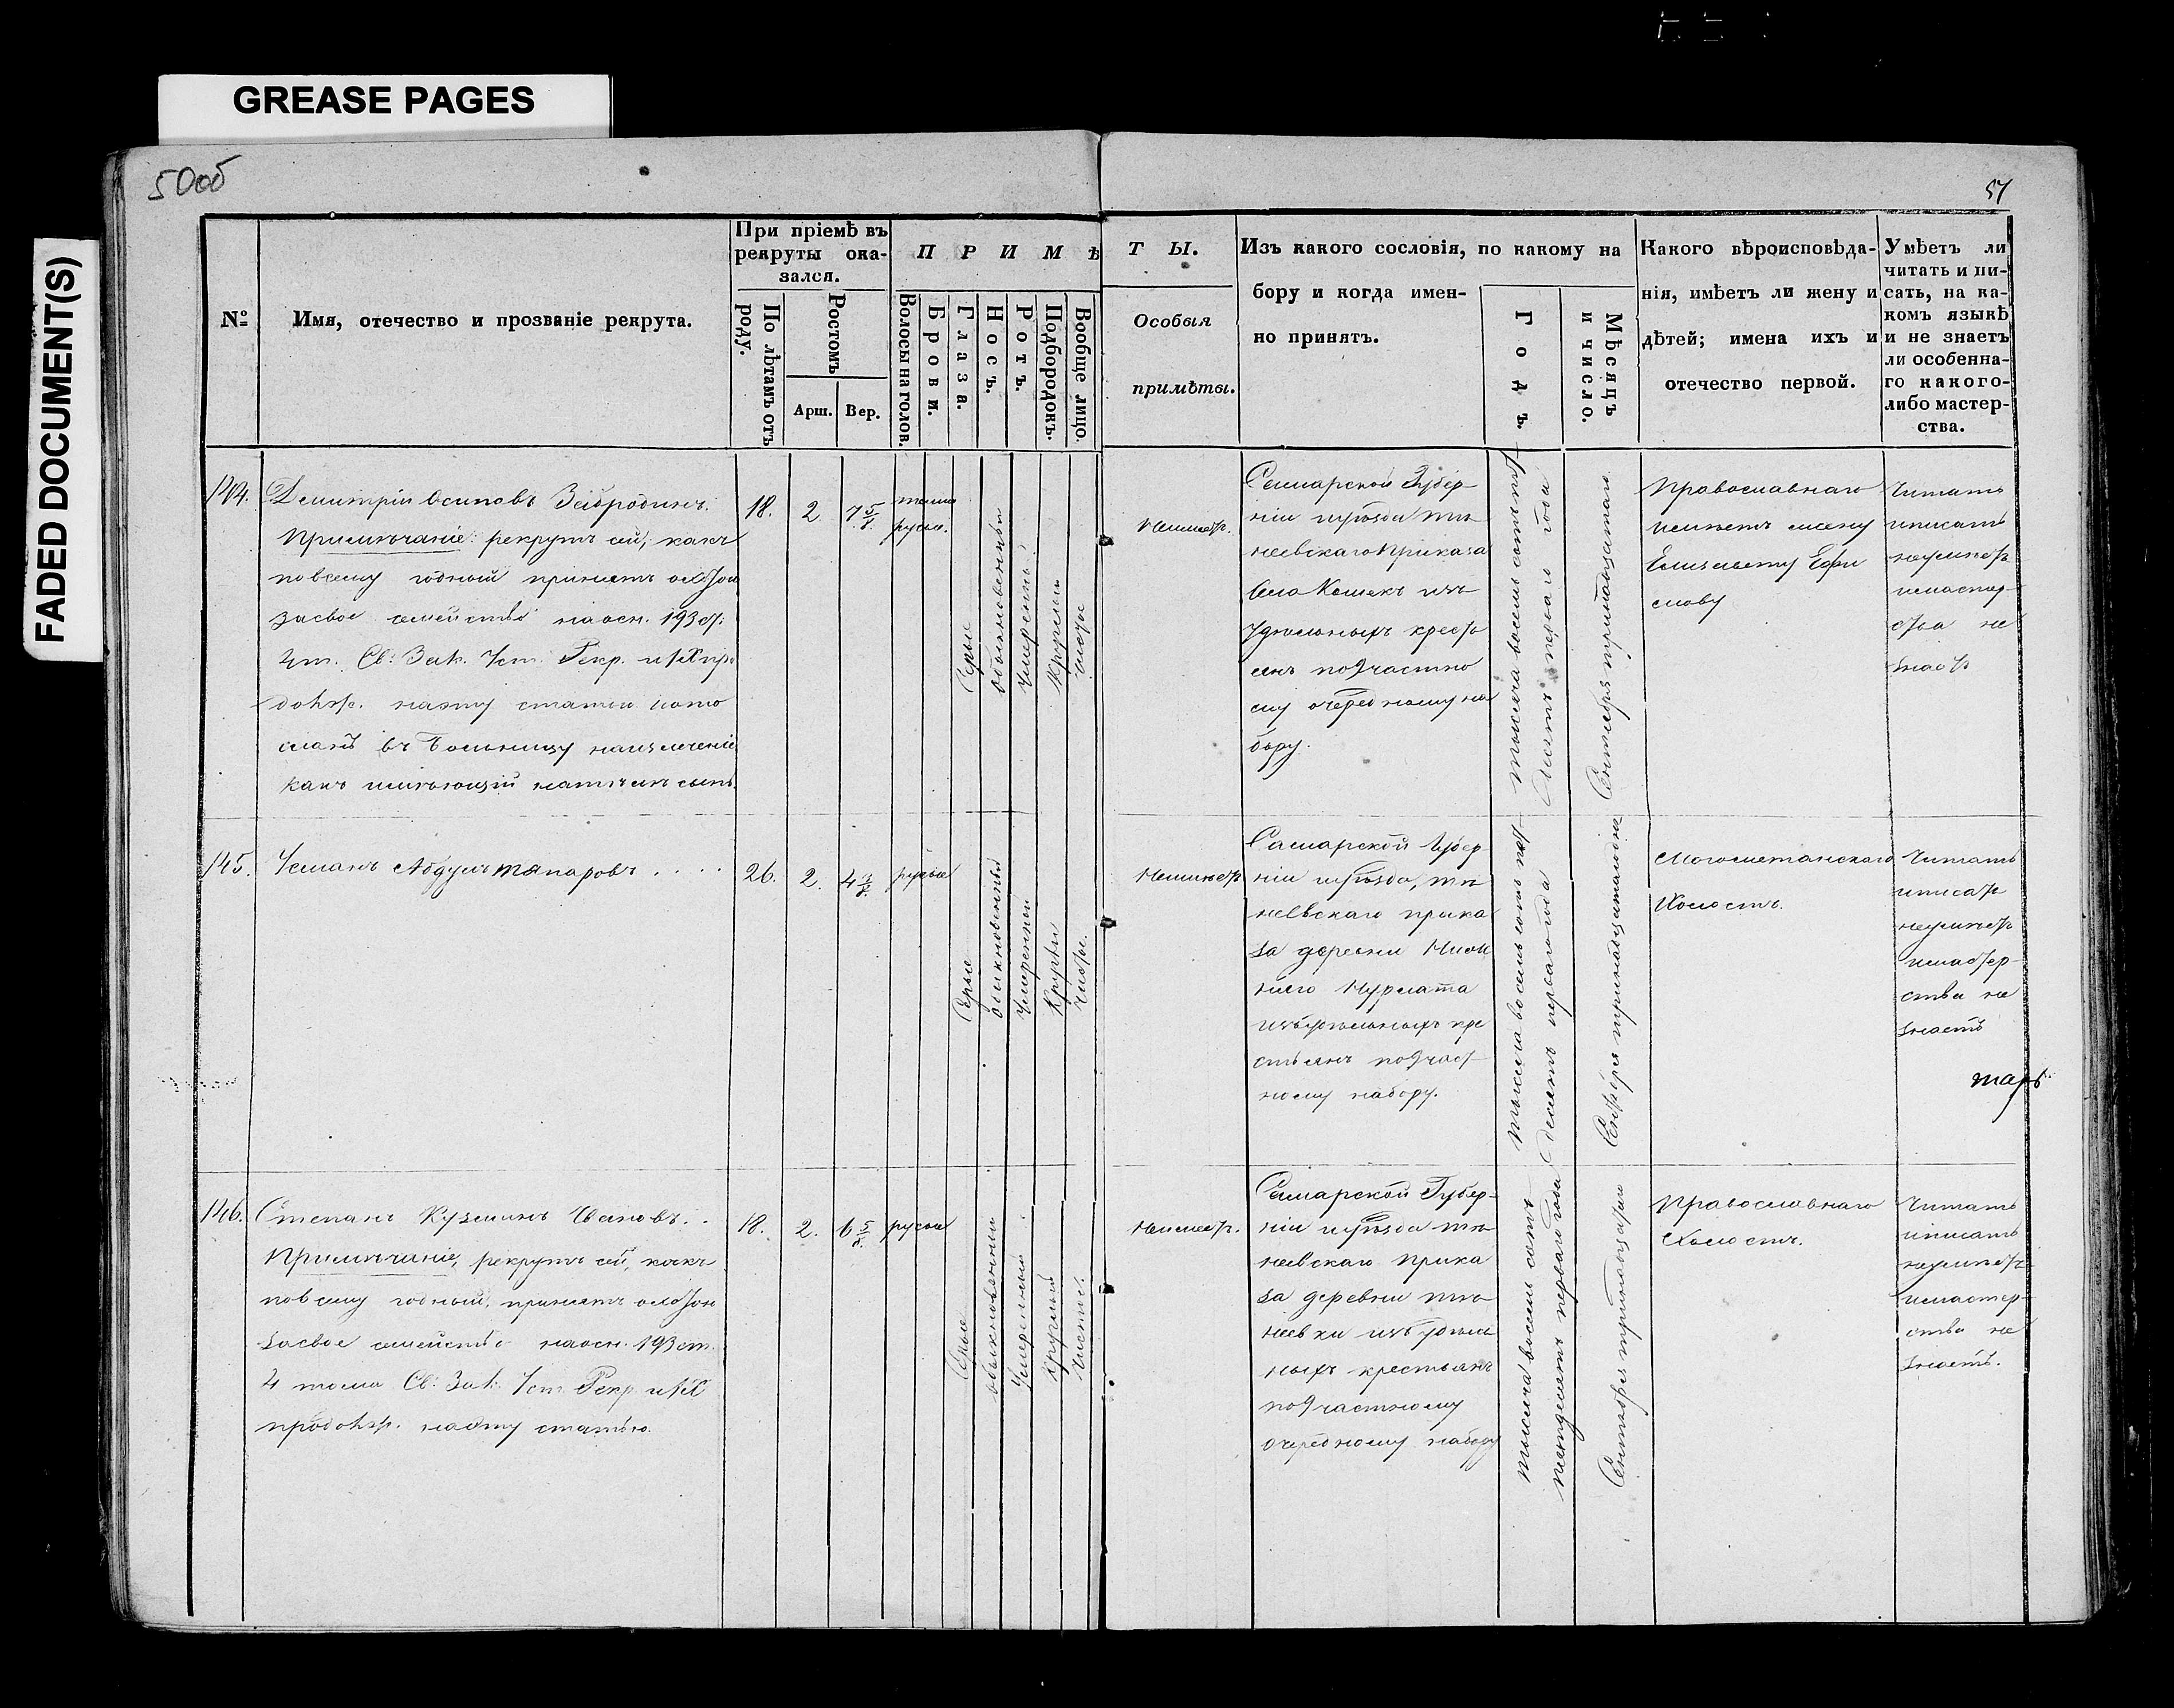 GREASE PAGES
FADED DOCUMENT(S)
50об
51
№
Имя, отечество и прозваніе рекрута.
При пріемѣ въ
рекруты ока-
зался.
По лѣтамъ отъ
роду.
Ростомъ
Арш.
Вер.
П Р И М Ѣ
Волосы на голов.
Брови.
Глаза.
Носъ.
Ротъ.
Подбородокъ.
Вообще лицо.
Т Ы.
Особыя
примѣты.
Изъ какого сословія, по какому на
бору и когда имен-
но принятъ.
Годъ.
Мѣсяцъ
и число.
Какого вѣроисповѣда-
нія, имѣетъ ли жену и
дѣтей; имена ихъ и
отечество первой.
Умѣетъ ли
читать и пи-
сать, на ка-
комъ языкѣ
и не знаетъ
ли особенна-
го какого-
либо мастер-
ства.
144.
Демитрій Осиповъ
Примѣчаніе: рекрутъ сей, какъ
по всему годный принятъ
за свое семейство на осн. 193 ст.
4 т. Св: Зак. Уст. Рекр.
на эту статью
въ Больницу на излеченіе
какъ имѣющій
18.
2
7 5/8.
темно
русые.
Сѣрые
обыкновенный
Умеренный
Круглый
чистое
Неимѣетъ.
Самарской Губер-
ніи и уѣзда Тѣ-
неевскаго Приказа
Села Кошекъ изъ
Удѣльныхъ кресть
янъ по 9 частно
му очередному на
бору.
тысяча восемь сотъ пять
десятъ перваго года
Сентября тринадцатаго
Православнаго
имѣетъ жену
Елизавету Ефи
мову
Читать
и писать
неумѣетъ
и мастер-
ства не
знаетъ
145.
Усманъ Абдулътапаровъ . . . .
26.
2.
русые
Сѣрые
обыкновенный
Умеренный
Круглый
Чистое.
Неимѣетъ
Самарской Губер
ніи и уѣзда, Тѣ
неевскаго прика
за деревни Ниж
няго Нурлата
изъ удѣльныхъ кре
стьянъ по 9 част
ному набору.
тысяча восемь сотъ пять
десятъ перваго года
Сентября тринадцатаго дня
Могометанскаго
Холостъ.
Читать
и писать
неумѣетъ
и мастер-
ства не
знаетъ
146.
Степанъ Кузминъ Ивановъ. .
Примѣчаніе, рекрутъ сей, какъ
по всему годный, принятъ
за свое семейство на осн. 193 ст.
4 тома Св: Зак. Уст. Рекр.
продолж. на эту статью.
18.
2.
6 5/8.
русые
Сѣрые
обыкновенный
Умеренный
Круглый
Чистое.
Неимѣетъ.
Самарской Губер-
ніи и уѣзда Тѣ-
неевскаго прика
за деревни Тѣ
неевки изъ удѣль
ныхъ крестьянъ
по 9 частному
очередному набору
тысяча восемь сотъ
пятдесятъ перваго года
Сентября тринадцатаго
Православнаго
Холостъ.
Читать
и писать
неумѣетъ
и мастер-
ства не
знаетъ.